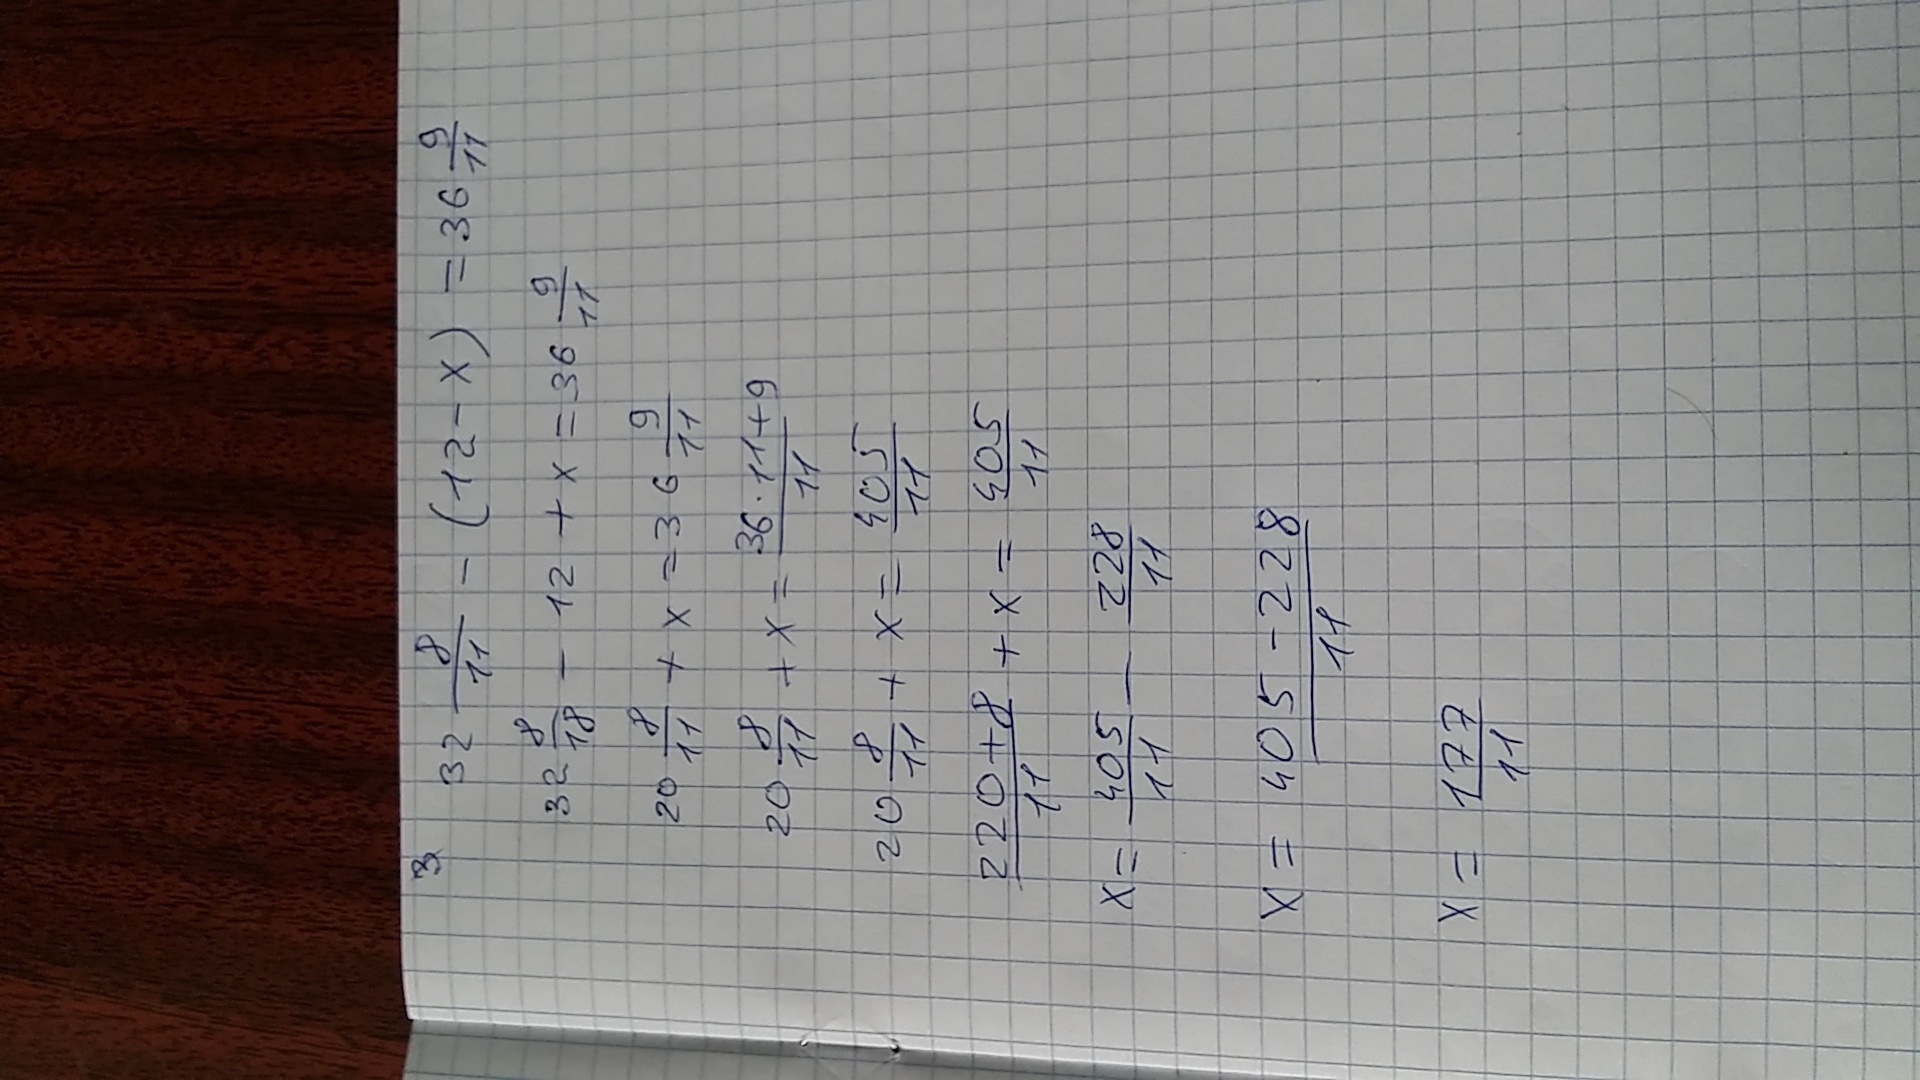 3
32 8/11 - (12 - x) = 36 9/11
32 8/18 - 12 + x = 36 9/11
20 8/11 + x = 36 9/11
20 8/11 + x = 36·11+9/11
20 8/11 + x = 405/11
220+8/11 + x = 405/11
x = 405/11 - 228/11
x = 405-228/11
x = 177/11